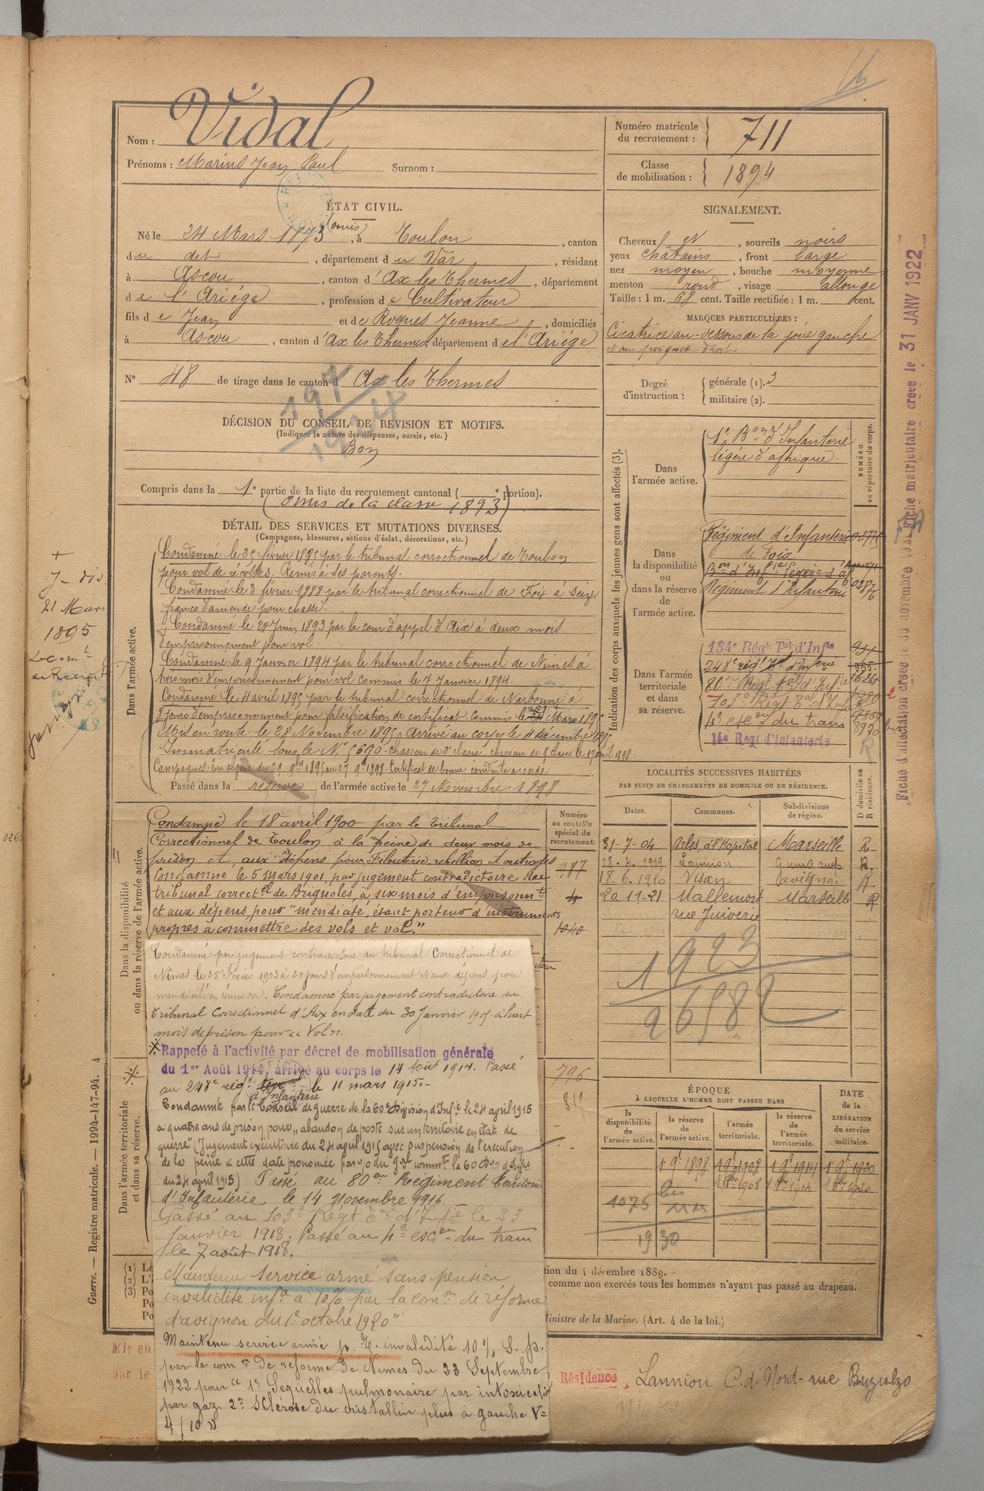 Nom : Vidal
Prénoms : Marius Jean Paul Surnom :
Numéro matricule du recrutement : 711
Classe de mobilisation : 1894
ÉTAT CIVIL.
Né le 24 Mars 1873 (omis), à Toulon, canton
du dit, département du Var, résidant
à Ascou, canton d'Ax les Thermes, département
de l'Ariège, profession de Cultivateur
fils de Jean et de Roques Jeanne, domiciliés
à Ascou, canton d'Ax les Thermes département de l'Ariège
N° 48 de tirage dans le canton d'Ax les Thermes
197
1924
DÉCISION DU CONSEIL DE REVISION ET MOTIFS.
(Indiquer la nature des dispenses, sursis, etc.)
Bon
Compris dans la 1e partie de la liste du recrutement cantonal ( e portion).
(omis de la classe 1893)
SIGNALEMENT.
Cheveux et, sourcils noirs
yeux châtains, front large
nez moyen, bouche moyenne
menton rond, visage allongé
Taille : 1 m. 68 cent. Taille rectifiée : 1 m. cent.
MARQUES PARTICULIÈRES :
Cicatrice au-dessous de la joue gauche
et au poignet droit
Degré d'instruction : générale (1). 3
militaire (2).
DÉTAIL DES SERVICES ET MUTATIONS DIVERSES.
(Campagnes, blessures, actions d'éclat, décorations, etc.)
Dans l'armée active.
Condamné le février par le tribunal correctionnel de Toulon
pour vol de récoltes. Remis à ses parents.
Condamné le 3 février 1888 par le tribunal correctionnel de Foix à seize
francs d'amende pour chasse.
Condamné le 20 Juin 1893 par la cour d'appel d'Aix à deux mois
d'emprisonnement pour vol.
Condamné le 9 Janvier 1894 par le tribunal correctionnel de Nimes à
mois d'emprisonnement pour vol commis le 7 Janvier 1894.
Condamné le 11 avril 1895 par le tribunal correctionnel de Narbonne à
jours d'emprisonnement pour falsification de certificat commis le Mars 1895
Mis en route le 28 Novembre 1895 Arrivé au corps le décembre 1895
Immatriculé sous le N° 5690. Chasseur de 2e classe
Certificat de bonne conduite accordé.
Passé dans la réserve de l'armée active le 27 Novembre 1898
+
J-dis
21 Mars
1895
Dans la disponibilité ou dans la réserve de l'armée active.
Condamné le 18 avril 1900 par le Tribunal
Correctionnel de Toulon à la peine de deux mois de
prison et aux dépens pour filouterie, rébellion et outrages
Condamné le 5 mars 1901, par jugement contradictoire du
tribunal correctel de Brignoles, à six mois d'emprisonnt
et aux dépens, pour "mendicité, étant porteur d'instruments
propres à commettre des vols et vol."
Numéro au contrôle spécial du recrutement.
187
4
1010
796
84
Condamné par jugement contradictoire du tribunal Correctionnel de
Nimes le 25 Février 1903 à 20 jours d'emprisonnement et aux dépens, pour
mendicité en réunion. Condamné par jugement contradictoire du
tribunal Correctionnel d'Aix en date du 30 Janvier 1905 à huit
mois de prison pour "Vol".
Rappelé à l'activité par décret de mobilisation générale
du 1er Août 1914, arrivé au corps le 14 août 1914. Passé
au 248e régt d'Infanterie le 11 mars 1915.
Condamné par le Conseil de guerre de la 60e Division d'Infie le 24 avril 1915
à quatre ans de prison pour "abandon de poste sur un territoire en état de
guerre" (Jugement exécutoire du 24 avril 1915 avec suspension de l'exécution
de la peine à cette date prononcée par du gal commt la 60e Don d'Infie
du 24 avril 1915) Passé au 80e Régiment Territorial
d'Infanterie le 14 novembre 1916.
Passé au 103e Régt Tal d'Infie le 23
Janvier 1918. Passé au 4e escon du train
le 7 août 1918.
Maintenu Service armé sans pension
invalidité infre à 10% par la comon de réforme
d'avignon du 1er octobre 1920
Maintenu service armé p. T. invalidité 10% S. p.
par la comon de reforme de Nimes du 23 Septembre
1922 pour "1° Sequelles pulmonaire par intoxication
par gaz 2° Sclérose du cristallin plus à gauche V=
4/10 D
Dans l'armée territoriale et dans sa réserve.
Indication des corps auxquels les jeunes gens sont affectés (3).
NUMÉRO au répertoire du corps.
Dans l'armée active.
1er Bon d'Infanterie
légère d'afrique.
Dans la disponibilité ou dans la réserve de l'armée active.
Régiment d'Infanterie
de Foix
Régiment d'Infanterie
Dans l'armée territoriale et dans sa réserve.
134e Régt Tal d'Infie
248e régt d'Infie
80e Régt Tal d'Inf.
103e Régt Tal d'Inf
4e escon du train
15e Regt d'Infanterie
LOCALITÉS SUCCESSIVES HABITÉES
PAR SUITE DE CHANGEMENTS DE DOMICILE OU DE RÉSIDENCE.
Dates. Communes. Subdivisions de région. D domicile ou R résidence.
31-7-04 Arles à l'Hôpital Marseille R.
1919 Lannion Guingamp R.
18.6.1920 Visan Avignon R
20 11-21 Mallemort Marseille R
rue Juiverie
1923
ÉPOQUE
À LAQUELLE L'HOMME DOIT PASSER DANS
la disponibilité de l'armée active. la réserve de l'armée active. l'armée territoriale. la réserve de l'armée territoriale. DATE de la LIBÉRATION du service militaire.
1 9e 1898 1 9e 1908 1 9e 1914 1 9e 1920
1075
1930
tion du 4 décembre 1889.
comme non exercés tous les hommes n'ayant pas passé au drapeau.
Ministre de la Marine. (Art. 4 de la loi.)
Résidence Lannion C.-d.-Nord- rue Buzulzo
Mis en
par le
Guerre. — Registre matricule. — 1994-147-94. 4
Fiche matriculaire créée le 31 JANV 1922
Fiche d'affectation créée le novembre